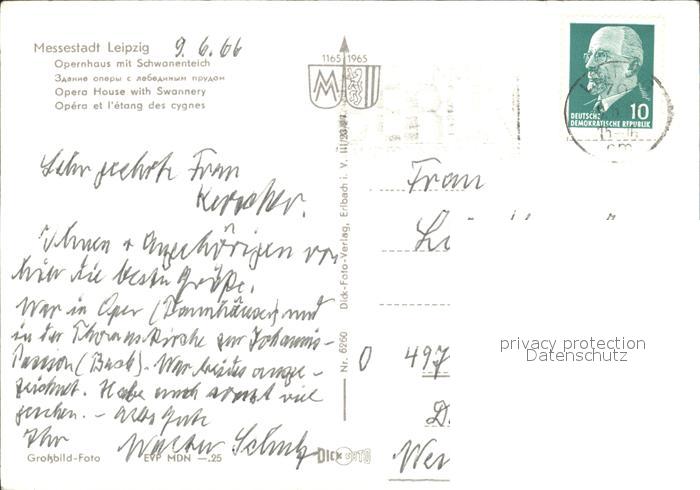 Messestadt Leipzig 9.6.66
Opernhaus mit Schwanenteich
Здание оперы с лебединым прудом
Opera House with Swannery
Opéra et l'étang des cygnes
1165 1965
M
DEUTSCHE
DEMOKRATISCHE REPUBLIK 10
15-16
Sehr geehrte Frau
Ihnen + Angehörigen von
hier die besten Grüße.
War in Oper (Tannhäuser) und
in der Thomaskirche zur Johannis-
Passion (Bach). War beides ausge-
zeichnet. Habe auch sonst viel
gesehen. - Alles Gute
Ihr Walter Schulz
Großbild-Foto EVP MDN —.25
Nr. 6260 Dick-Foto-Verlag, Erlbach i. V.
DICK FOTO
Frau
Li
O 497
D.
Wer
privacy protection
Datenschutz